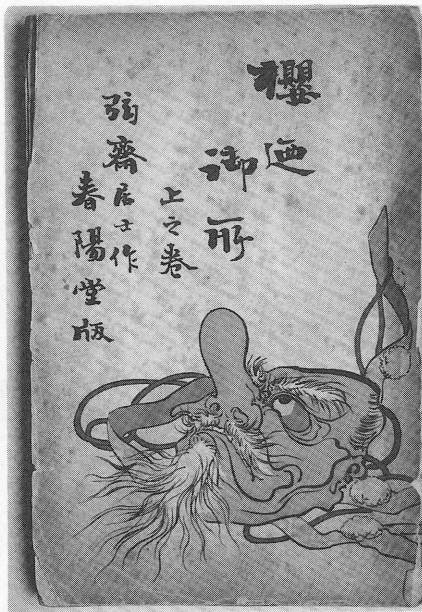 櫻迺
御所
上之卷
弦齋居士作
春陽堂版